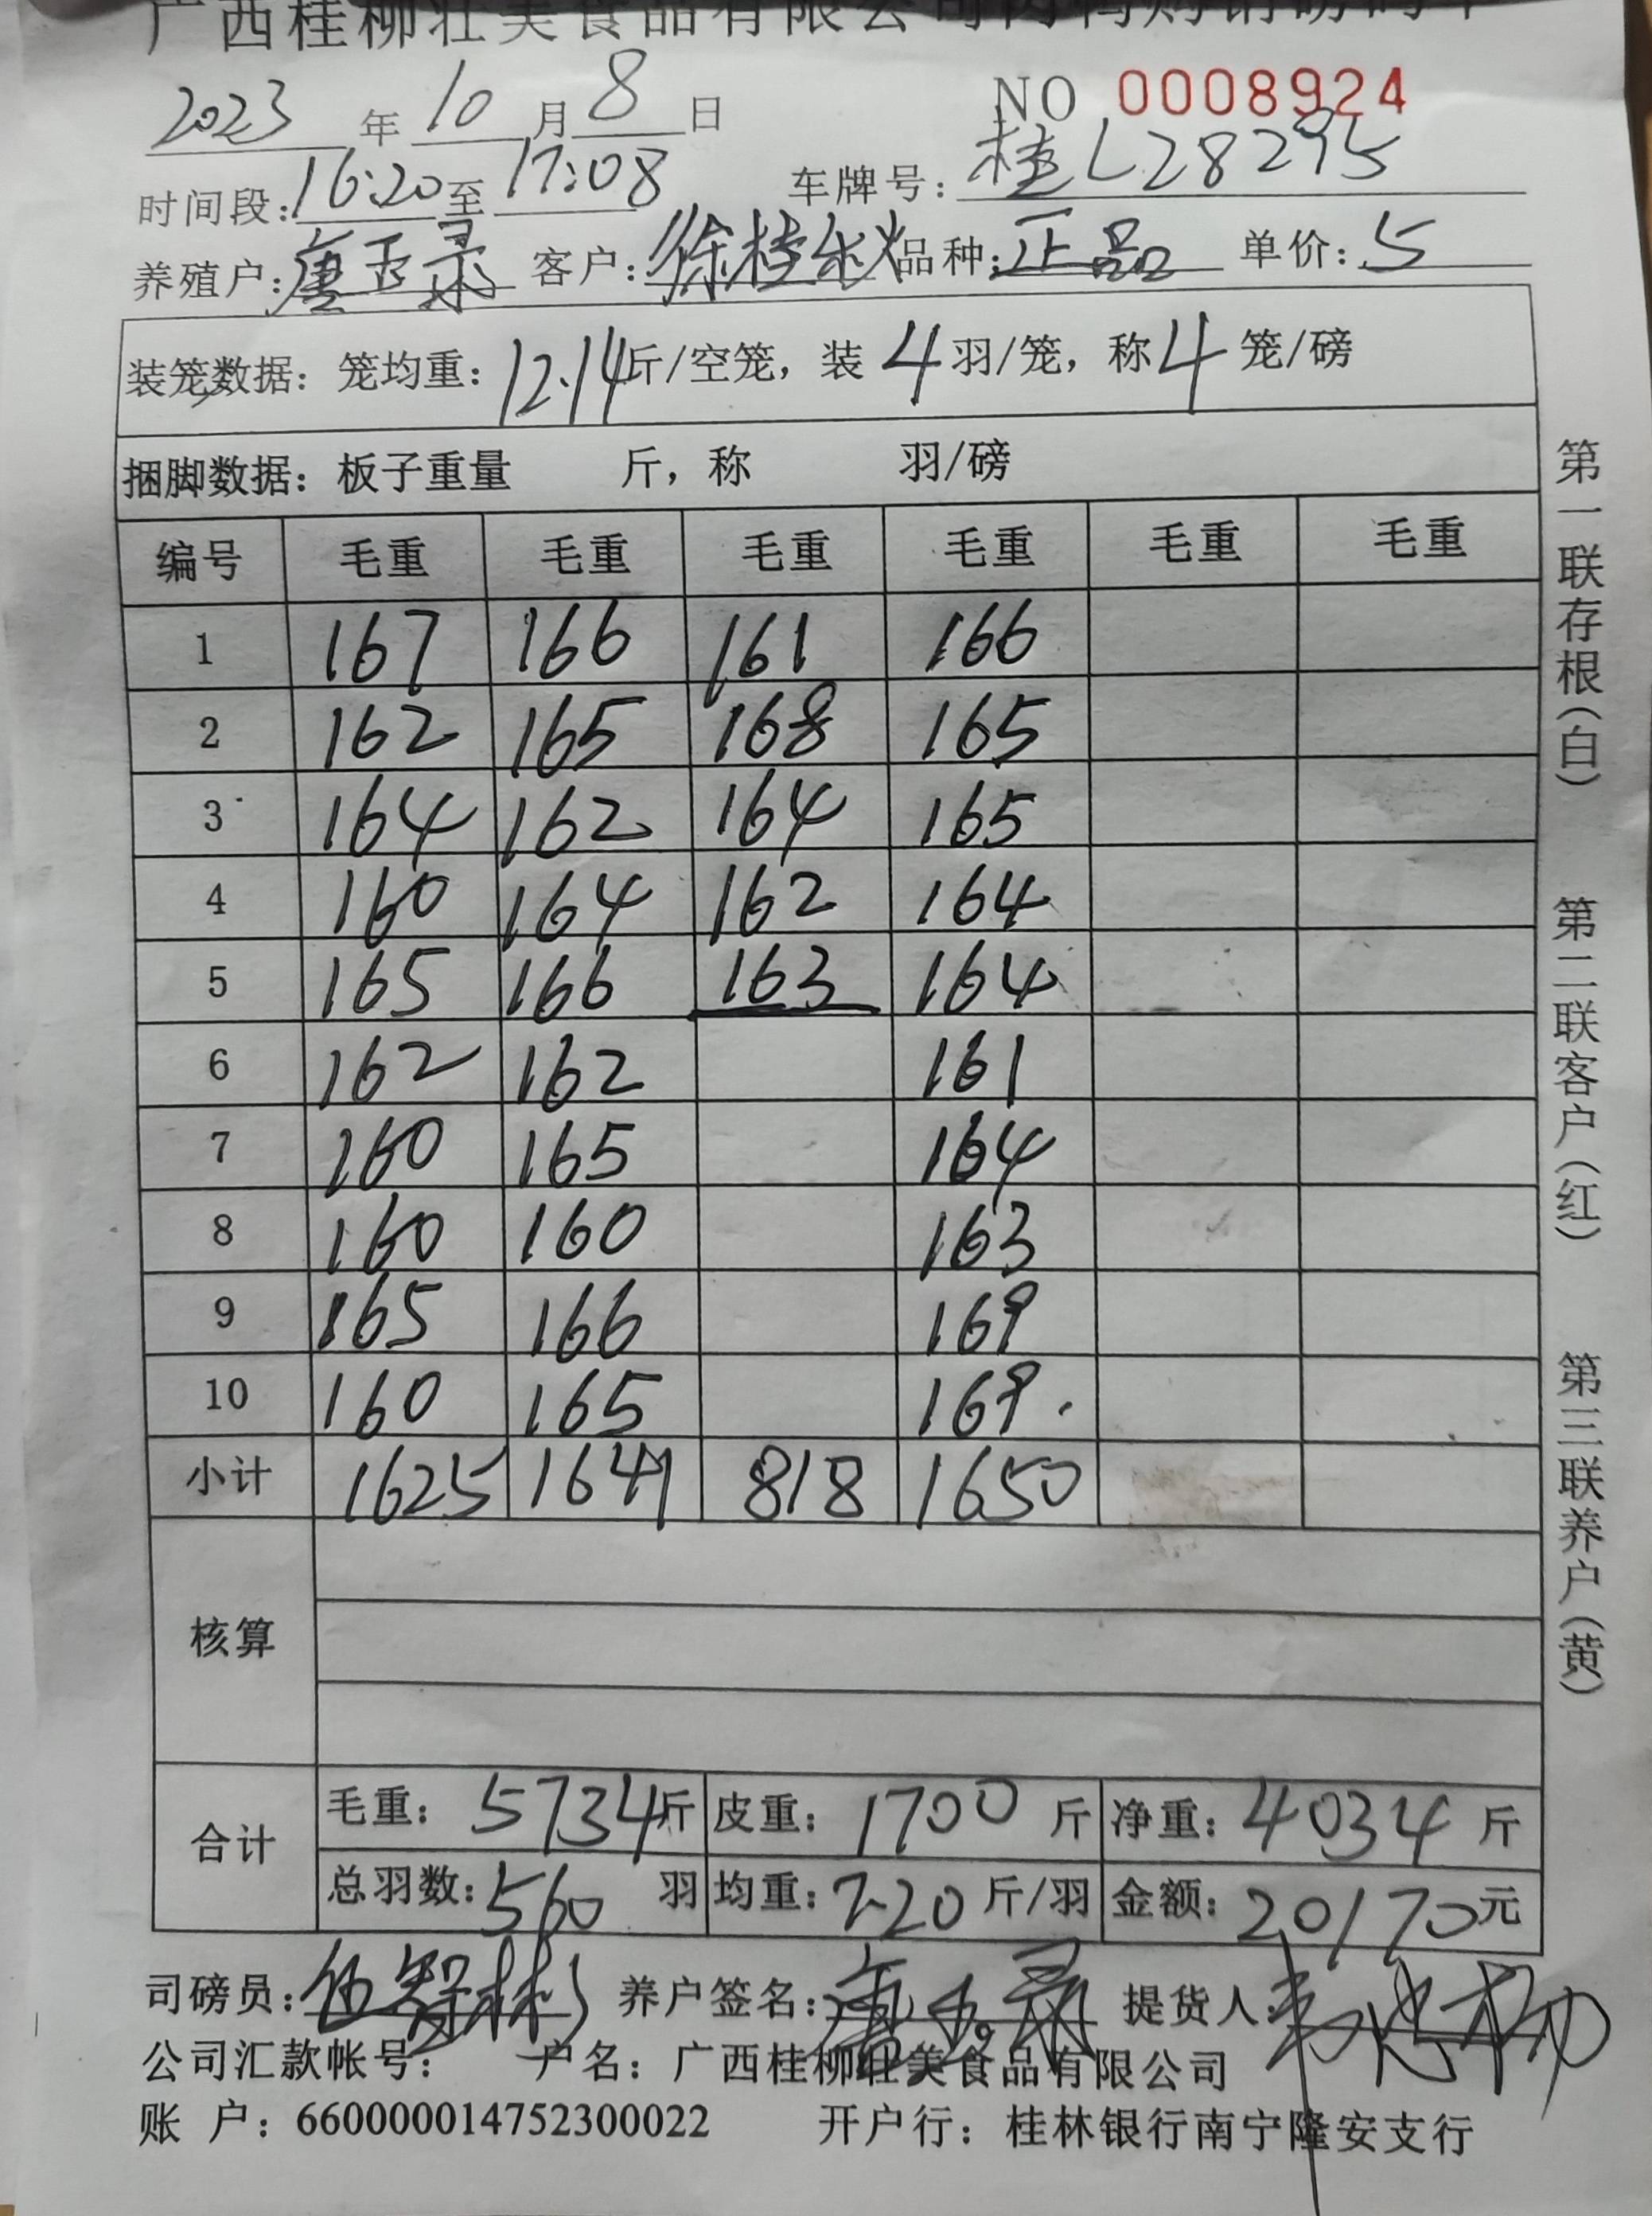 广西桂柳壮美食品有限公司肉鸭购销磅码单
2023年10月8日 NO 0008924
时间段:16:20至17:08 车牌号:桂L28295
养殖户:唐玉录 客户:徐桂秋 品种:正品 单价:5
装笼数据:笼均重:12.14斤/空笼,装4羽/笼,称4笼/磅
捆脚数据:板子重量 斤,称 羽/磅
编号 毛重 毛重 毛重 毛重 毛重 毛重
1 167 166 161 166
2 162 165 168 165
3 164 162 164 165
4 160 164 162 164
5 165 166 163 164
6 162 162 161
7 160 165 164
8 160 160 163
9 165 166 169
10 160 165 169.
小计 1625 1641 818 1650
核算
合计 毛重:5734斤 皮重:1700斤 净重:4034斤
总羽数:560羽 均重:7.20斤/羽 金额:20170元
司磅员: 养户签名:唐玉录 提货人:
公司汇款帐号: 户名:广西桂柳壮美食品有限公司
账 户:660000014752300022 开户行:桂林银行南宁隆安支行
第一联存根(白) 第二联客户(红) 第三联养户(黄)